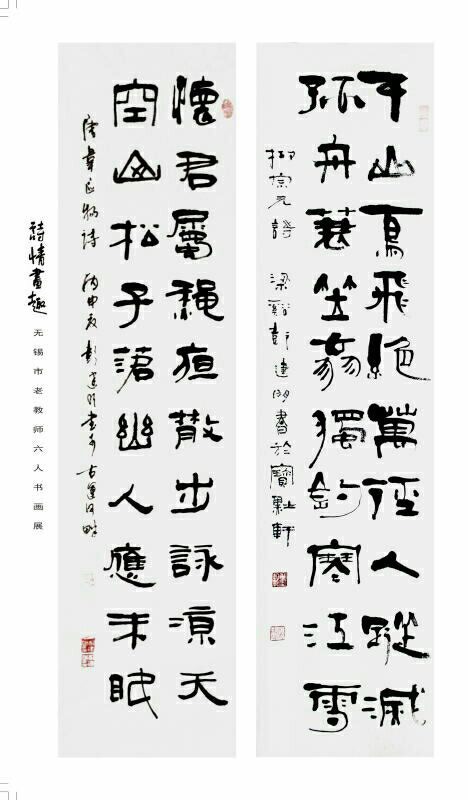 千山鳥飛絕萬徑人蹤滅
孤舟蓑笠翁獨釣寒江雪
柳宗元詩 梁谿彭建明書於寶軒
懷君屬穐夜散步詠涼天
空山松子落幽人應未眠
唐韋應物詩 丙申夏彭建明書於古運河畔
詩情畫趣
无锡市老教师六人书画展